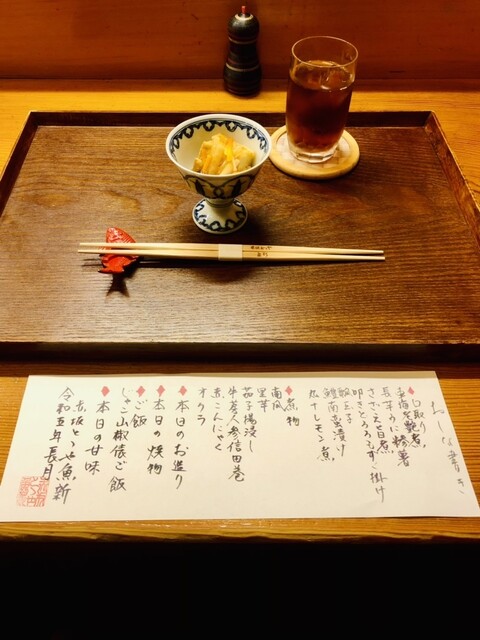 おしな書き
口取り
長芋うに糝薯
さざえ旨煮
叩きとろろもずく掛け
鯛南蛮漬け
広十レモン煮
煮物
南瓜
里芋
茄子揚浸し
牛蒡人参信田巻
赤こんにゃく
オクラ
本日のお造り
本日の焼物
ご飯
じゃこ山椒俵ご飯
本日の甘味
赤坂とゝや魚新
令和五年長月